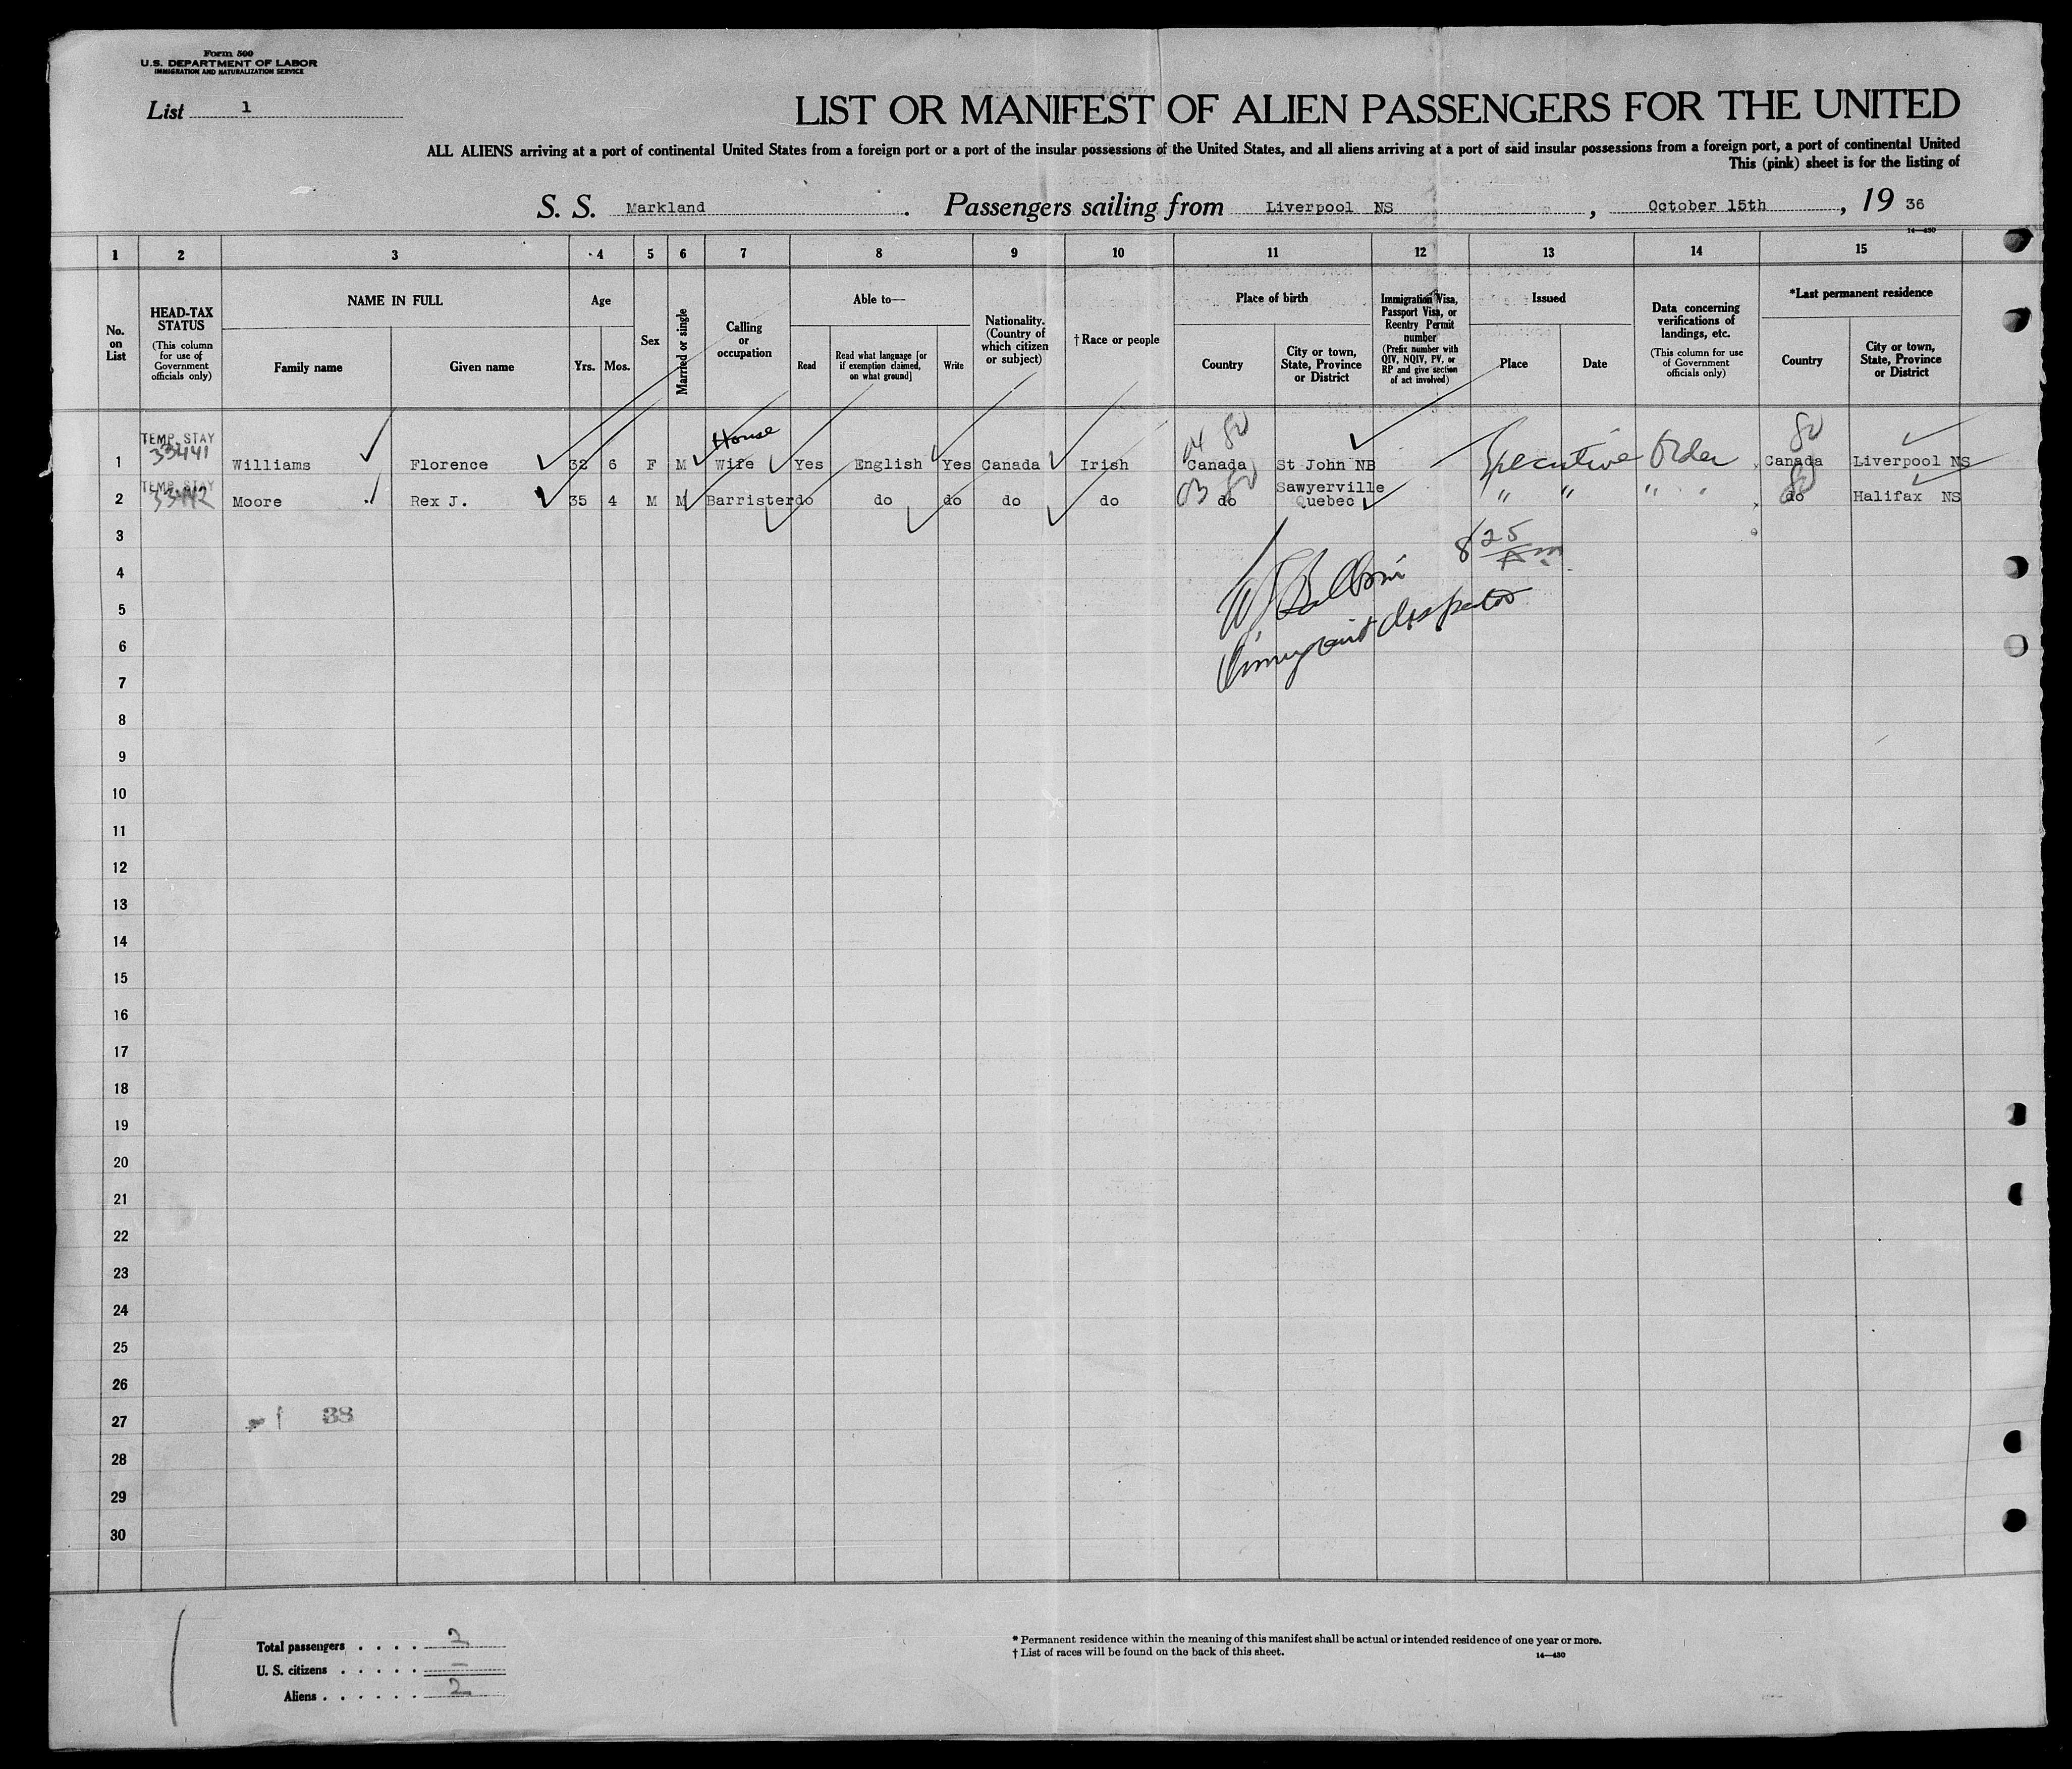 Form 500
U.S. DEPARTMENT OF LABOR
IMMIGRATION AND NATURALIZATION SERVICE
List 1
LIST OR MANIFEST OF ALIEN PASSENGERS FOR THE UNITED
ALL ALIENS arriving at a port of continental United States from a foreign port or a port of the insular possessions of the United States, and all aliens arriving at a port of said insular possessions from a foreign port, a port of continental United
This (pink) sheet is for the listing of
S. S. Markland . Passengers sailing from Liverpool NS , October 15th , 19 36
14—430
1 2 3 4 5 6 7 8 9 10 11 12 13 14 15
No. on List
HEAD-TAX STATUS (This column for use of Government officials only)
NAME IN FULL
Family name
Given name
Age
Yrs. Mos.
Sex
Married or single
Calling or occupation
Able to—
Read
Read what language [or if exemption claimed, on what ground]
Write
Nationality. (Country of which citizen or subject)
†Race or people
Place of birth
Country
City or town, State, Province or District
Immigration Visa, Passport Visa, or Reentry Permit number (Prefix number with QIV, NQIV, PV, or RP and give section of act involved)
Issued
Place
Date
Data concerning verifications of landings, etc. (This column for use of Government officials only)
*Last permanent residence
Country
City or town, State, Province or District
1 TEMP. STAY 33441 Williams Florence 32 6 F M House Wife Yes English Yes Canada Irish 04 80 Canada St John NB Executive Order 80 Canada Liverpool NS
2 TEMP. STAY 33442 Moore Rex J. 35 4 M M Barrister do do do do do 03 80 do Sawyerville Quebec " " " " 80 do Halifax NS
3 8 25 Am
4
5
6 Immigrant Inspector
7
8
9
10
11
12
13
14
15
16
17
18
19
20
21
22
23
24
25
26
27 38
28
29
30
Total passengers . . . . 2
U. S. citizens . . . . . —
Aliens . . . . . . 2
* Permanent residence within the meaning of this manifest shall be actual or intended residence of one year or more.
† List of races will be found on the back of this sheet.
14—430